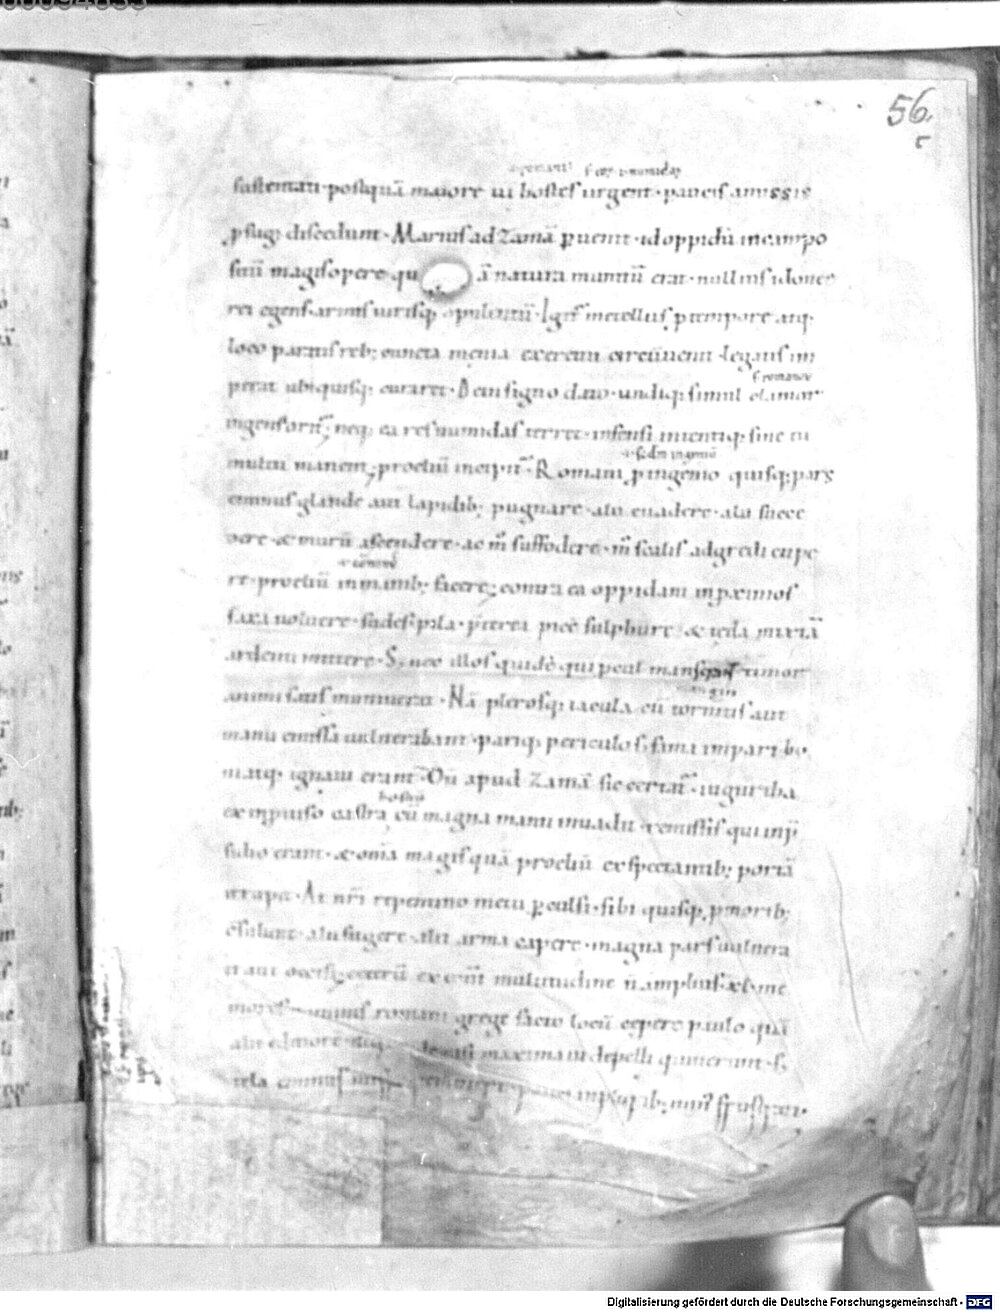 56
c
sustentati · postquā maiore ui hostes urgent · paucis amissis
ꝓfugi discedunt · Marius ad Zamā ꝑuenit · id oppidū in campo
situ magis opere quā natura munitū erat · nullius idonee
rei egens · armis uirisq; opulentū · Igit metellus ꝓ tempore atq;
loco paratis reb; cuncta menia exercitu circūuenit · legatis im
perat ubi quisq; curaret · Dein signo dato · undiq; simul clamor
s romanor
ingens orit̄; neq; ea res numidas terret · infensi intentiq; sine tu
multu manent; proeliū incipit̄ · Romani ꝓ ingenio quisq; pars
eminus glande aut lapidib; pugnare · alii euadere · alii succe
dere · & murū ascendere · ac m̄ suffodere · m̄ scalis adgredi cupe
re · proeliū in manib; facere; contra ea oppidani in ꝓximos
saxa uoluere · sudes · pila · p̄terea pice sulphure & teda mixtā
ardenti mittere · S; nec illos quidē qui ꝓcul manserant timor
animi satis muniuerat · Nā plerosq; iacula cū tormtis aut
manu emissa uulnerabant · pariq; periculo s; fama impari bo
ni atq; ignaui erant · Dū apud Zamā sic certat̄ · iugurtha
hostiū
ex inprouiso castra cū magna manu inuadit · remissis qui in p̄
sidio erant · & om̄ia magis quā proeliū exspectantib; portā
irrupit · At nr̄i repentino metu ꝑculsi · sibi quisq; ꝓ morib;
c̄sulunt · alii fugere · alii arma capere · magna pars uulnera
ti aut occisi; ceterū ex om̄i multitudine n̄ amplius · xl · me
mores nominis romani grege facto locū cepere paulo quā
alii editiore neq; inde maxima ui depelli quiuerunt · s;
tela eminus missa
Digitalisierung gefördert durch die Deutsche Forschungsgemeinschaft - DFG